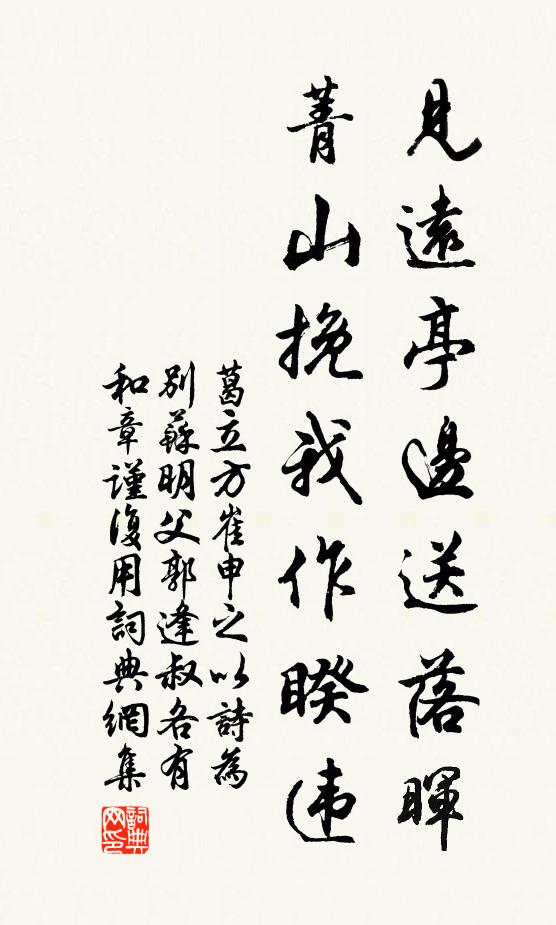 見遠亭邊送落暉
菁山挽我作暌违
葛立方崔申之以詩為
别蘇明父郭逢叔各有
和章謹復用詞典網集
詞典网印